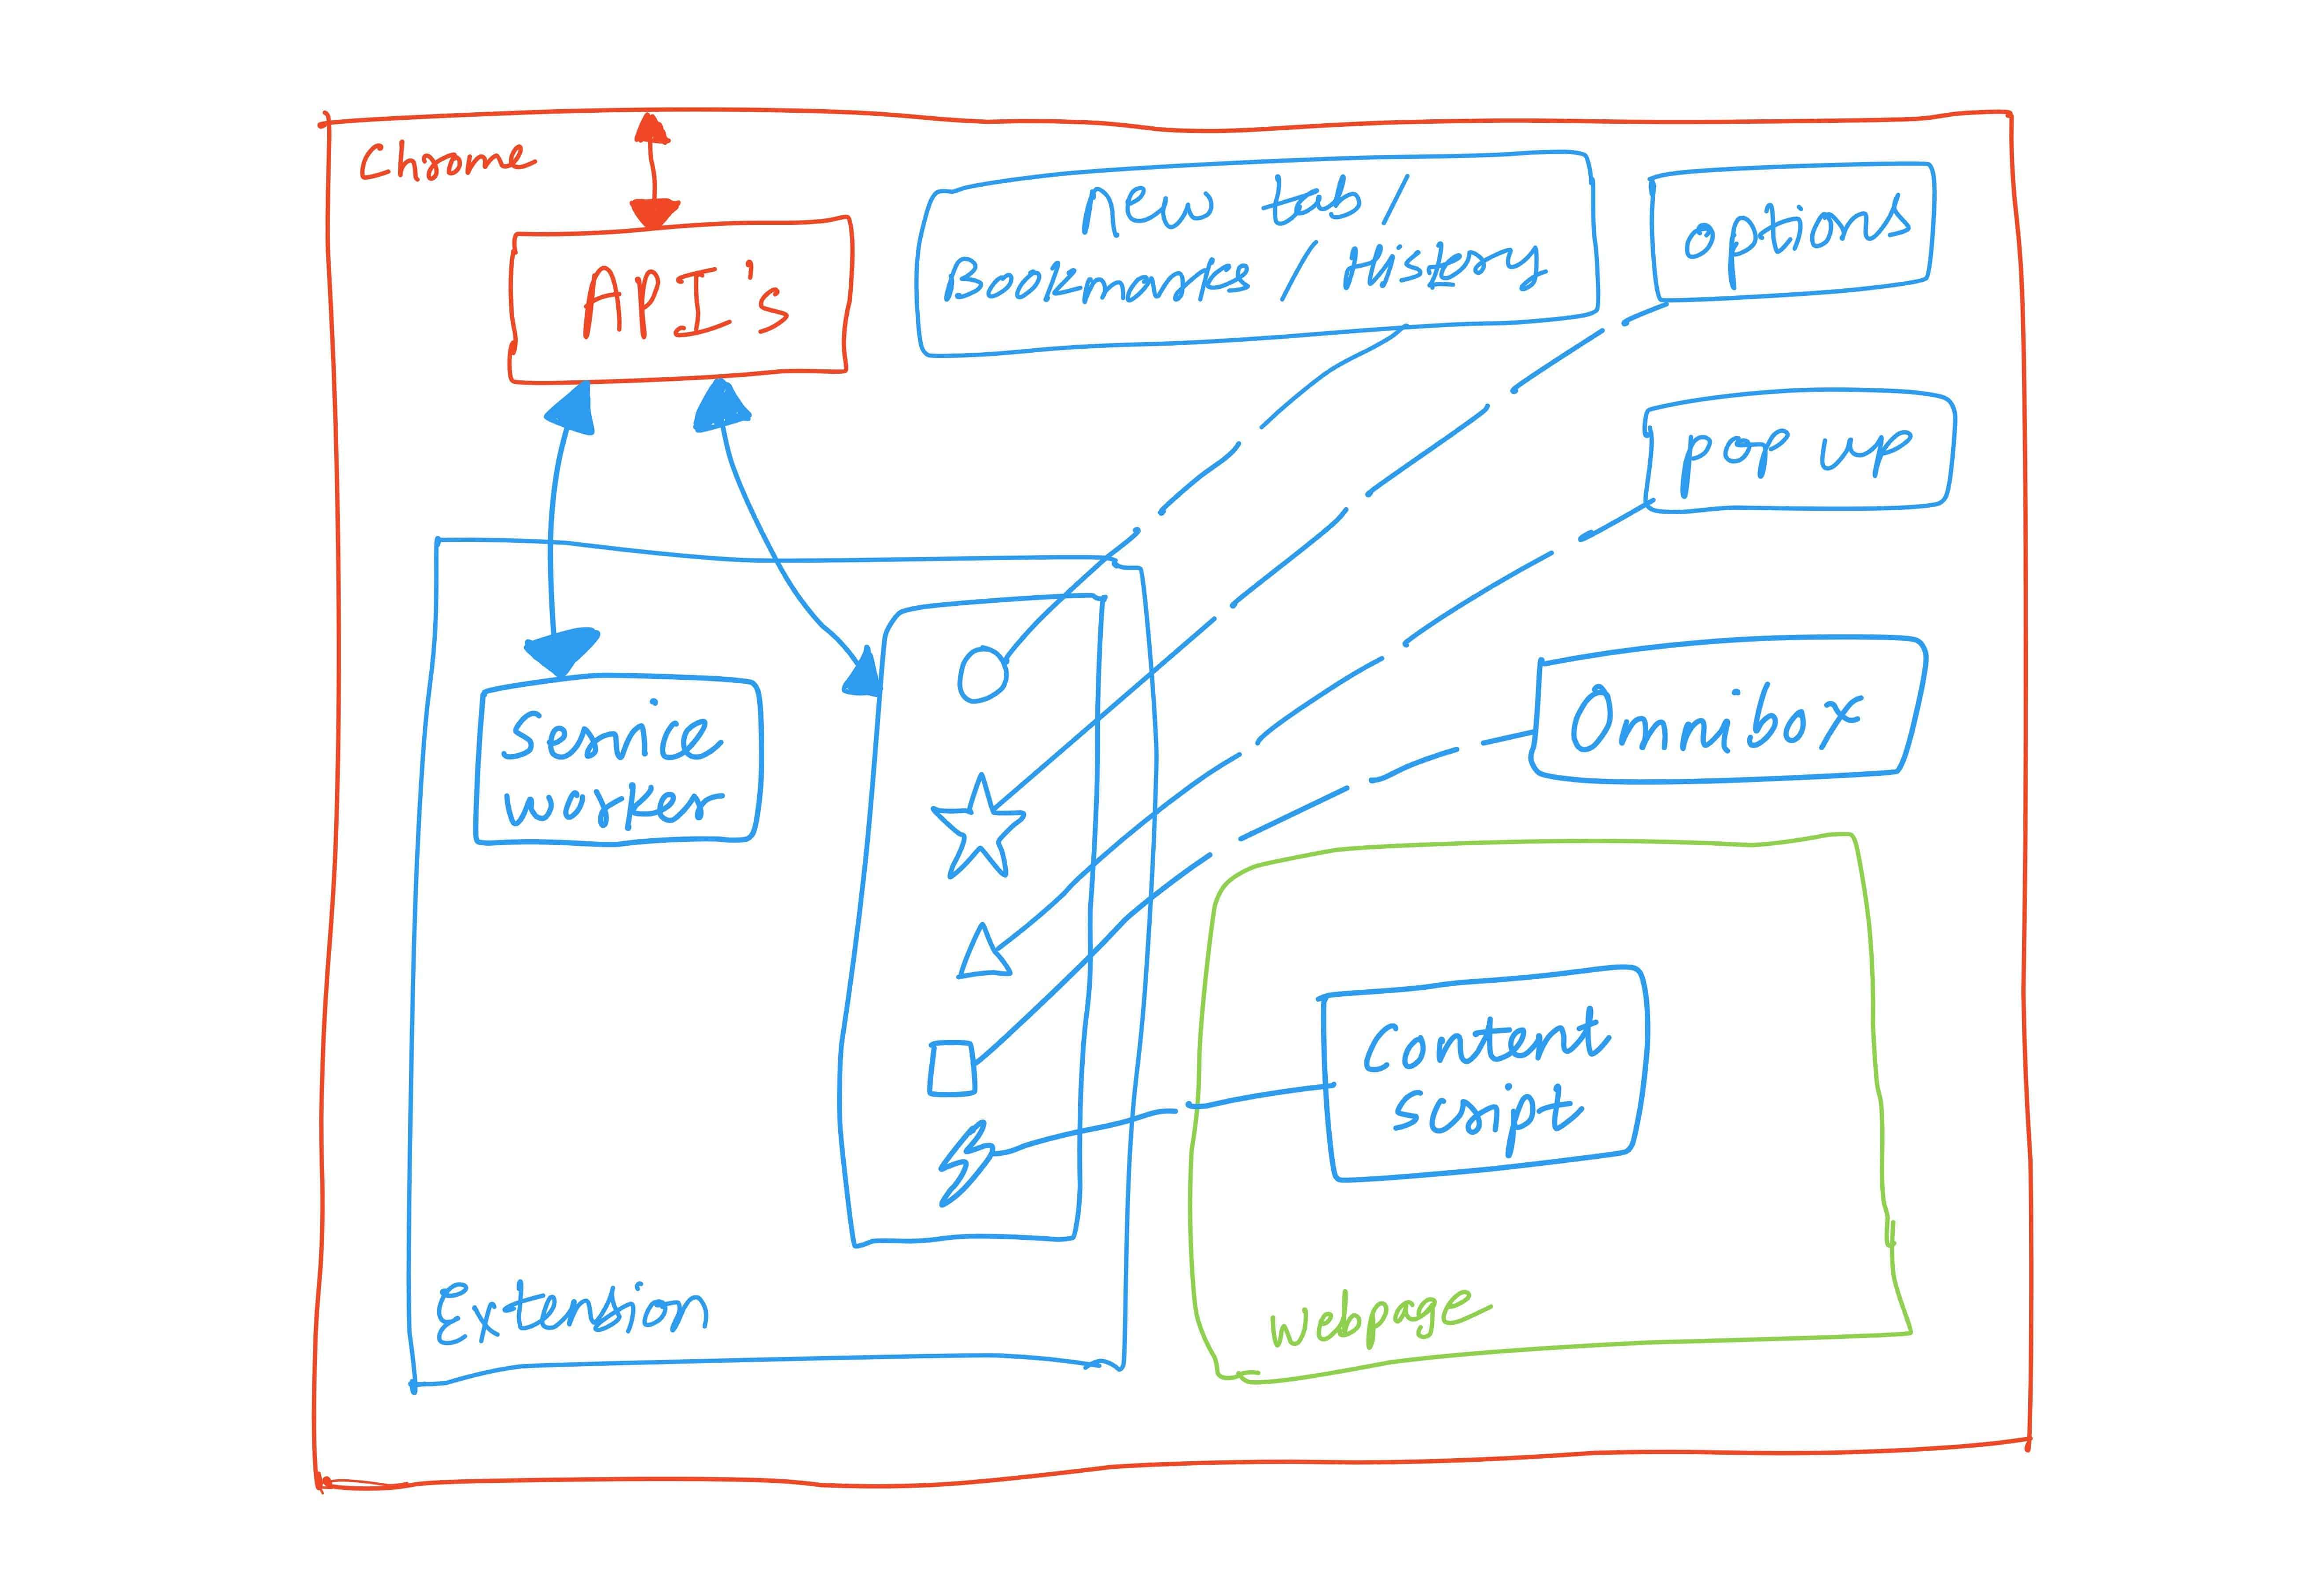 Chrome
API's
New tab /
Bookmarks / History
options
pop up
Omnibox
Service
worker
Content
script
Extension
webpage